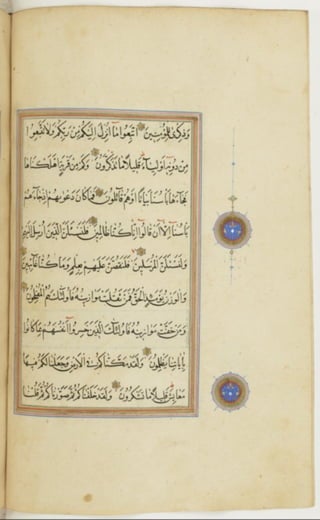 وَذِكْرَى لِلْمُؤْمِنِينَ اتَّبِعُوا مَا أُنْزِلَ إِلَيْكُمْ مِنْ رَبِّكُمْ وَلَا تَتَّبِعُوا
مِنْ دُونِهِ أَوْلِيَاءَ قَلِيلًا مَا تَذَكَّرُونَ وَكَمْ مِنْ قَرْيَةٍ أَهْلَكْنَاهَا
فَجَاءَهَا بَأْسُنَا بَيَاتًا أَوْ هُمْ قَائِلُونَ فَمَا كَانَ دَعْوَاهُمْ إِذْ جَاءَهُمْ
بَأْسُنَا إِلَّا أَنْ قَالُوا إِنَّا كُنَّا ظَالِمِينَ فَلَنَسْئَلَنَّ الَّذِينَ أُرْسِلَ إِلَيْهِمْ
وَلَنَسْئَلَنَّ الْمُرْسَلِينَ فَلَنَقُصَّنَّ عَلَيْهِمْ بِعِلْمٍ وَمَا كُنَّا غَائِبِينَ
وَالْوَزْنُ يَوْمَئِذٍ الْحَقُّ فَمَنْ ثَقُلَتْ مَوَازِينُهُ فَأُولَئِكَ هُمُ الْمُفْلِحُونَ
وَمَنْ خَفَّتْ مَوَازِينُهُ فَأُولَئِكَ الَّذِينَ خَسِرُوا أَنْفُسَهُمْ بِمَا كَانُوا
بِآيَاتِنَا يَظْلِمُونَ وَلَقَدْ مَكَّنَّاكُمْ فِي الْأَرْضِ وَجَعَلْنَا لَكُمْ فِيهَا
مَعَايِشَ قَلِيلًا مَا تَشْكُرُونَ وَلَقَدْ خَلَقْنَاكُمْ ثُمَّ صَوَّرْنَاكُمْ ثُمَّ قُلْنَا